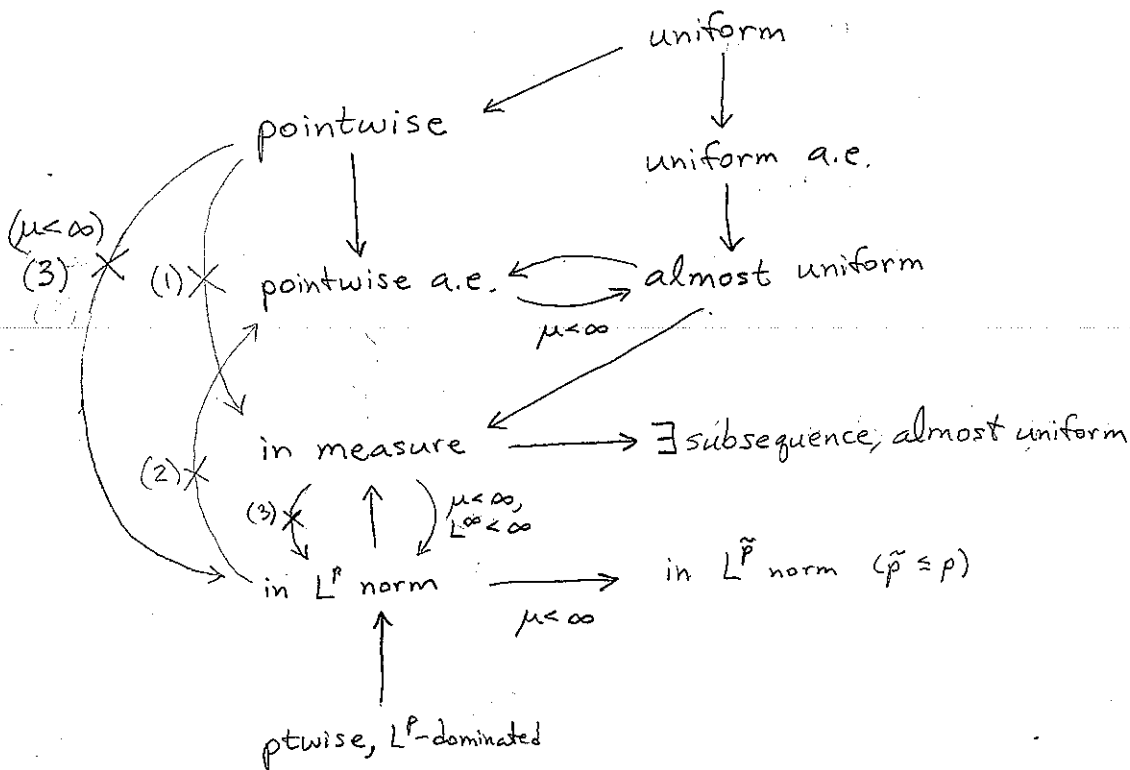 uniform
pointwise
uniform a.e.
(μ<∞)
(3)
(1)
pointwise a.e.
almost uniform
μ<∞
in measure
∃ subsequence, almost uniform
(2)
(3)
μ<∞,
L^∞<∞
in L^p norm
in L^p̃ norm (p̃ ≤ p)
μ<∞
ptwise, L^p-dominated